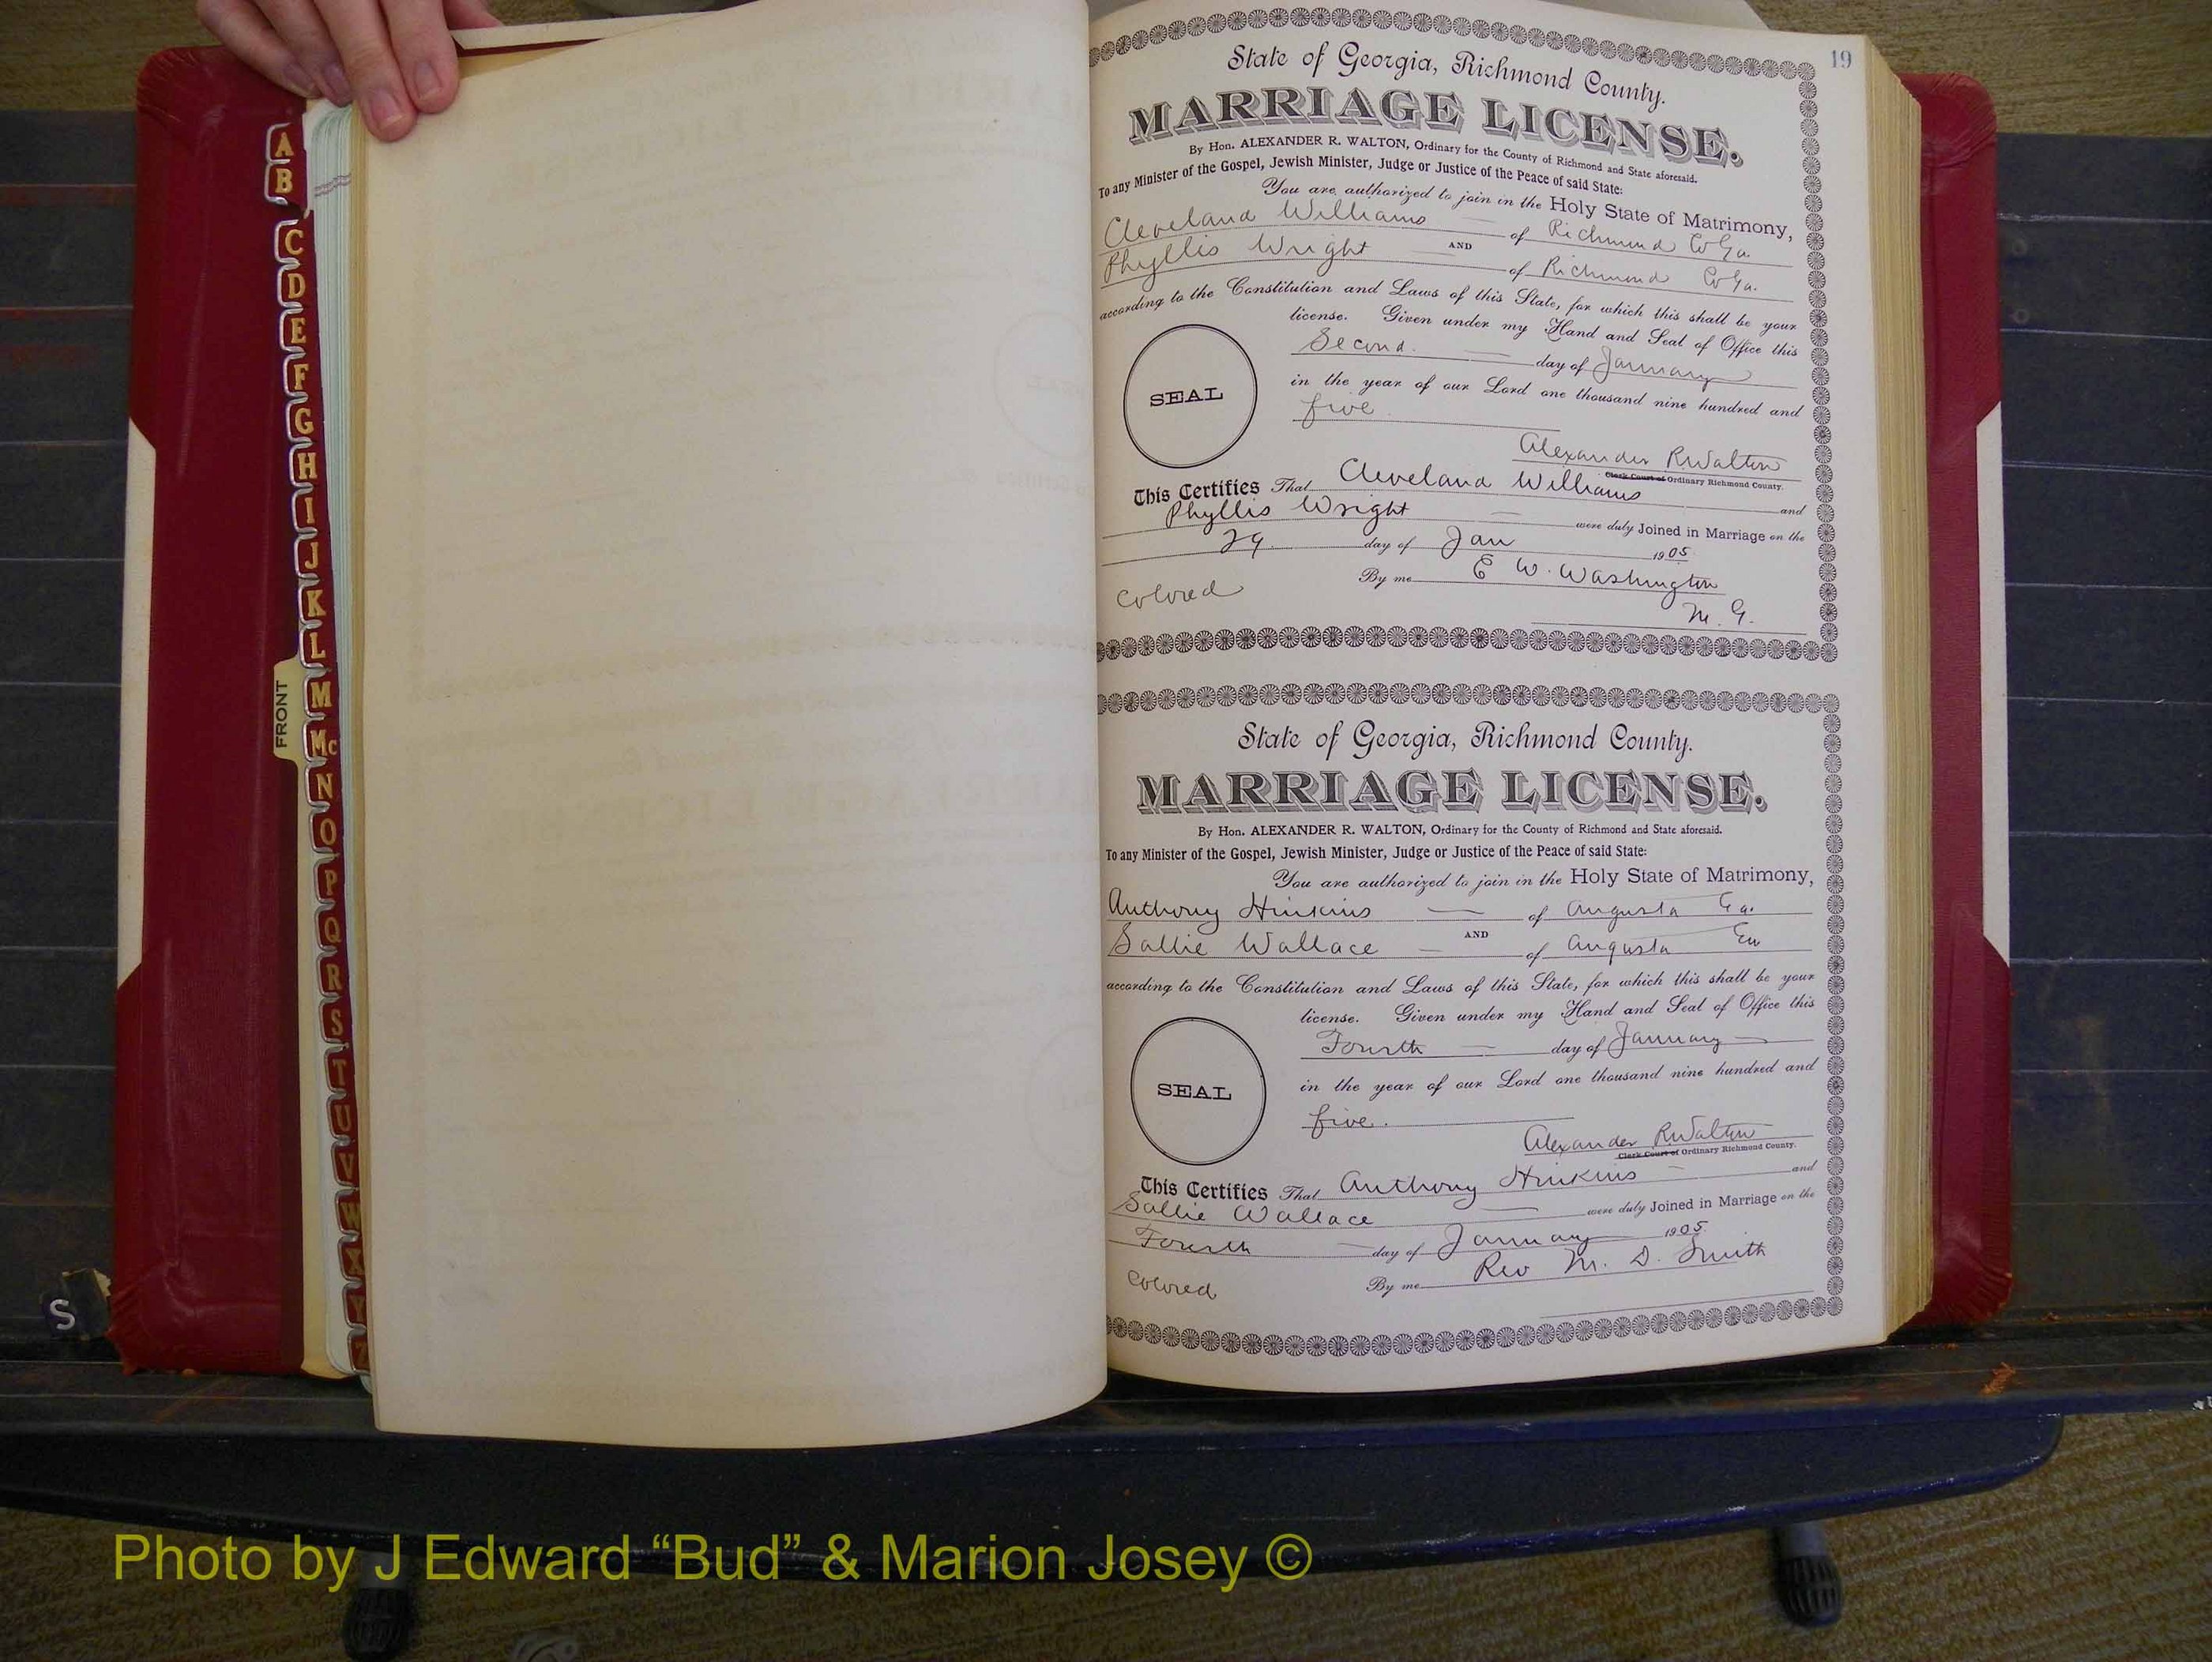 A
B
C
D
E
F
G
H
I
J
K
L
M
Mc
N
O
P
Q
R
S
T
U
V
W
X
Y
Z
FRONT
S
19
State of Georgia, Richmond County.
MARRIAGE LICENSE.
By Hon. ALEXANDER R. WALTON, Ordinary for the County of Richmond and State aforesaid.
To any Minister of the Gospel, Jewish Minister, Judge or Justice of the Peace of said State:
You are authorized to join in the Holy State of Matrimony,
Cleveland Williams of Richmond Co Ga.
AND
Phyllis Wright of Richmond Co Ga.
according to the Constitution and Laws of this State, for which this shall be your
license. Given under my Hand and Seal of Office this
Second. day of January
in the year of our Lord one thousand nine hundred and
five.
SEAL
Alexander R Walton
Clerk Court of Ordinary Richmond County.
This Certifies That Cleveland Williams and
Phyllis Wright were duly Joined in Marriage on the
29. day of Jan 1905.
By me E W. Washington
colored M. G.
State of Georgia, Richmond County.
MARRIAGE LICENSE.
By Hon. ALEXANDER R. WALTON, Ordinary for the County of Richmond and State aforesaid.
To any Minister of the Gospel, Jewish Minister, Judge or Justice of the Peace of said State:
You are authorized to join in the Holy State of Matrimony,
Anthony Hinkins of Augusta Ga.
AND
Sallie Wallace of Augusta Ga
according to the Constitution and Laws of this State, for which this shall be your
license. Given under my Hand and Seal of Office this
Fourth day of January
in the year of our Lord one thousand nine hundred and
five.
SEAL
Alexander R Walton
Clerk Court of Ordinary Richmond County.
This Certifies That Anthony Hinkins and
Sallie Wallace were duly Joined in Marriage on the
Fourth day of January 1905.
colored By me Rev M. D. Smith
Photo by J Edward “Bud” & Marion Josey ©